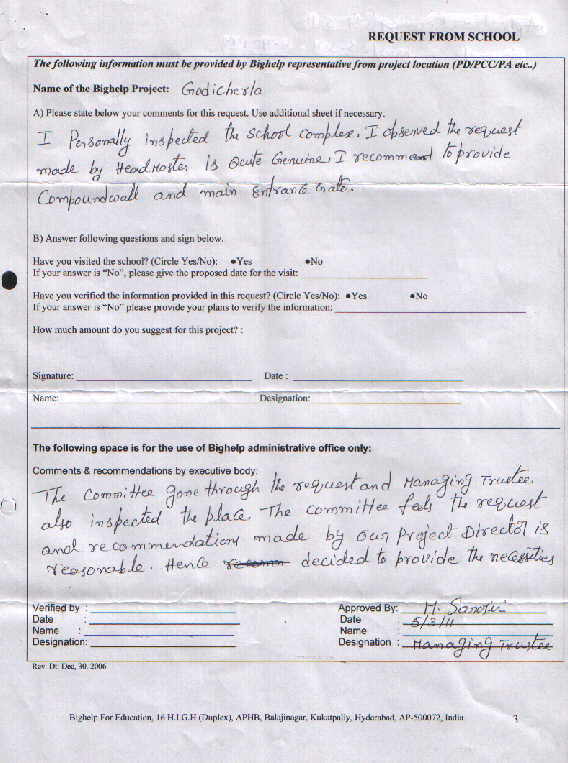 REQUEST FROM SCHOOL
The following information must be provided by Bighelp representative from project location (PD/PCC/PA etc..)
Name of the Bighelp Project: Godicherla
A) Please state below your comments for this request. Use additional sheet if necessary.
I Personally Inspected the School complex. I observed the request
made by HeadMaster is Qeute Genuine. I recommend to provide
Compoundwall and main Entrance Gate.
B) Answer following questions and sign below.
Have you visited the school? (Circle Yes/No): •Yes •No
If your answer is "No", please give the proposed date for the visit:
Have you verified the information provided in this request? (Circle Yes/No): •Yes •No
If your answer is "No" please provide your plans to verify the information:
How much amount do you suggest for this project? :
Signature: Date :
Name: Designation:
The following space is for the use of Bighelp administrative office only:
Comments & recommendations by executive body:
The Committee gone through the request and Managing Trustee.
also inspected the place. The committee feels the request
and recommendations made by our Project Director is
reasonable. Hence decided to provide the necessities
Verified by : Approved By:
Date : Date : 5/3/11
Name : Name :
Designation: Designation : Managing Trustee
Rev. Dt: Dec, 30, 2006
Bighelp For Education, 16 H.I.G.H (Duplex), APHB, Balajinagar, Kukatpally, Hyderabad, AP-500072, India
3